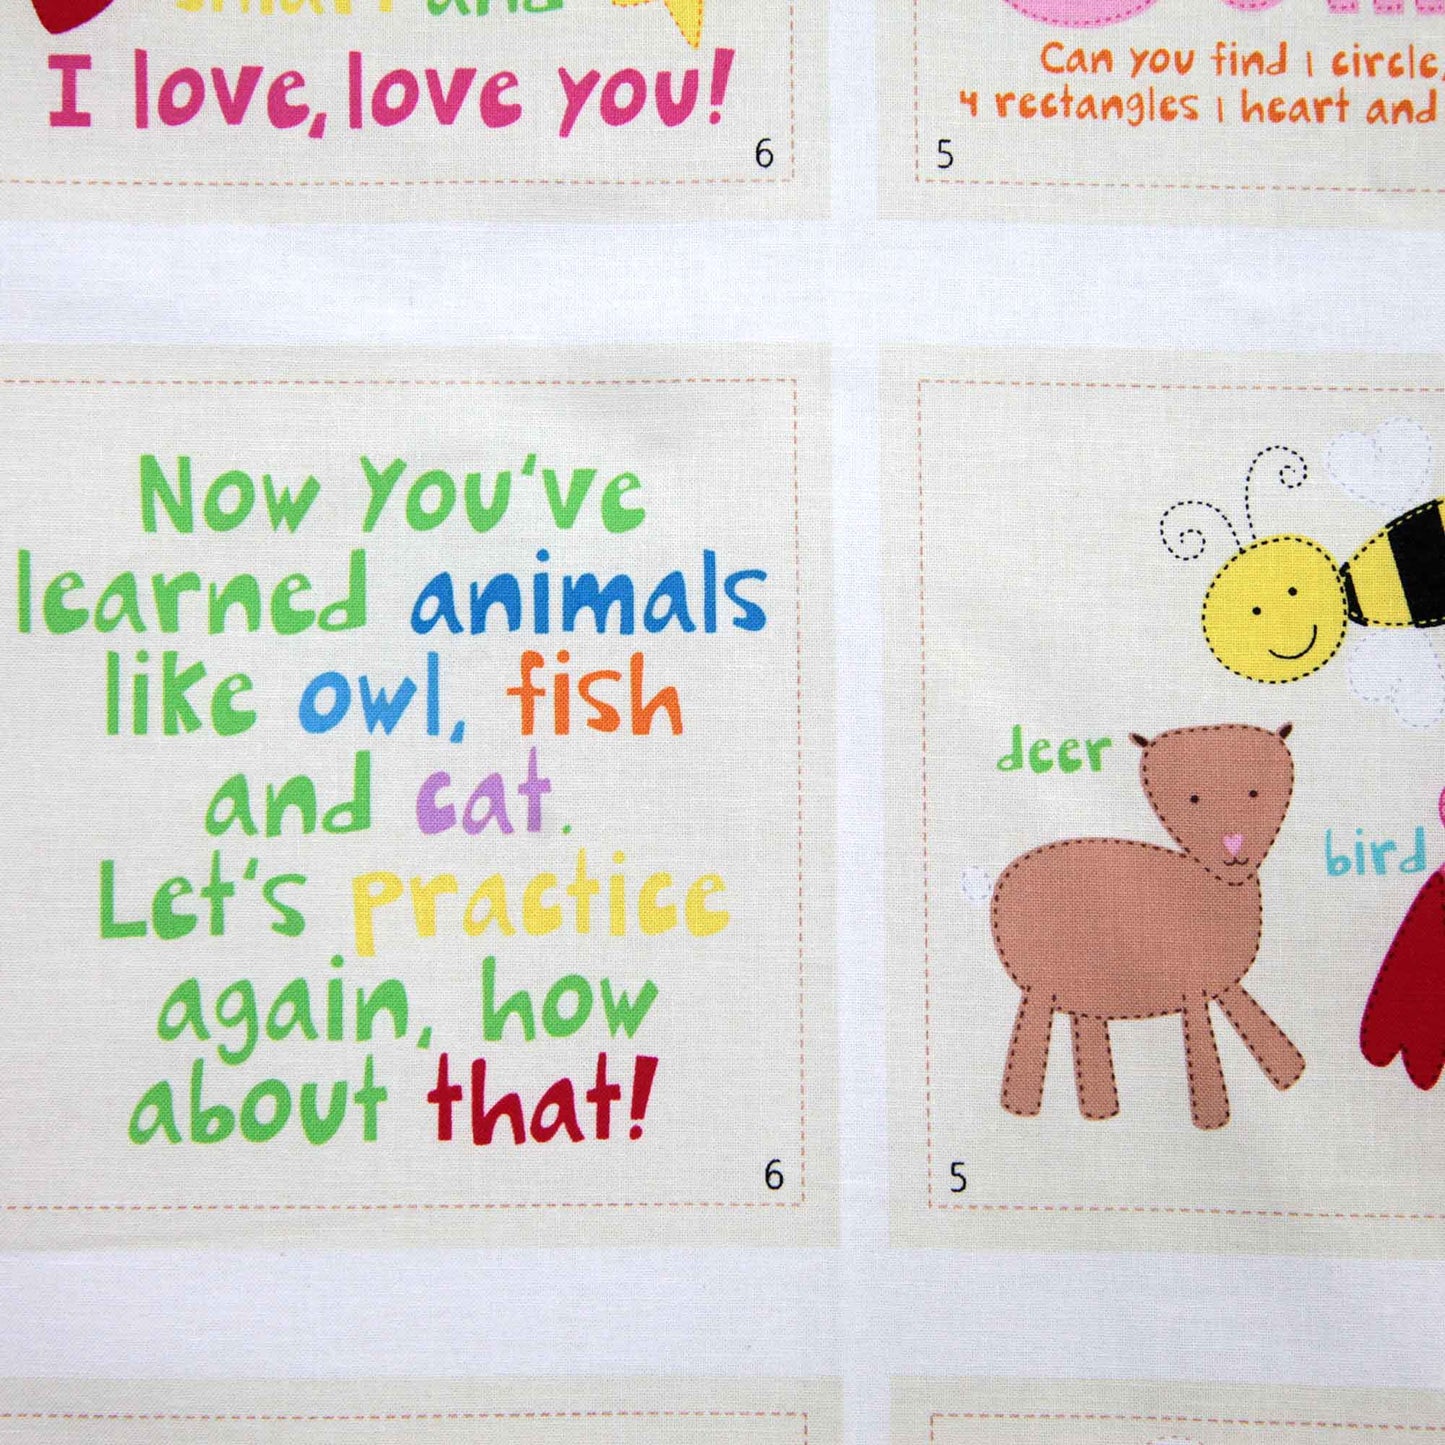 smart and
I love, love you!
6
Can you find 1 circle,
4 rectangles 1 heart and
5
Now you've
learned animals
like owl, fish
and cat.
Let's practice
again, how
about that!
6
deer
bird
5